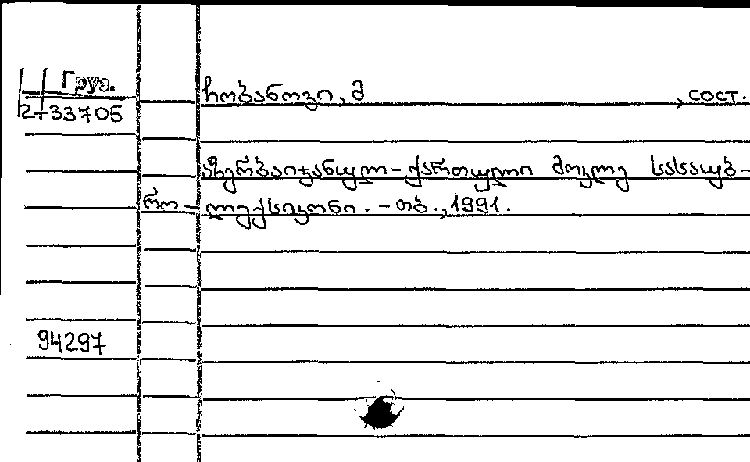 Груз.
2-33705
ჩობანოვი, მ , сост.
აზერბაიჯანულ-ქართული მოკლე სასაუბ-
რო-ლექსიკონი. - თბ., 1991.
94297